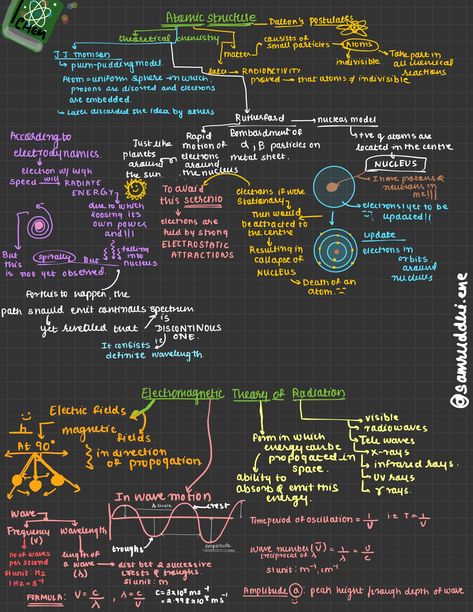 CHEM
Atomic structure
Dalton's postulates
theoretical chemistry
J.J Thomson
plum-pudding model.
Atom = uniform sphere in which
protons are disored and electrons
are embedded.
later discarded the idea by others
matter
consists of
small particles
Atoms
indivisible.
Take part in
all chemical
reactions
later → RADIOACTIVITY
proved → that atoms ≠ indivisible
Rutherford
nuclear model
Rapid
motion of
electrons
around
the nucleus
Just like
planets
around
the sun.
Bombardment of
particles on
metal sheet.
+ve q atoms are
located in the centre
NUCLEUS
I have protons &
neutrons in
me!!
electrons yet to be
updated!!
update
electrons in
orbits
around
nucleus
According to
electrodynamics.
electron w/ high
speed will RADIATE
ENERGY
due to which
loosing its
own
power
and!!
falling
into
nucleus
But
this
is not yet observed.
spirally
But
To avoid
this scenerio
electrons are
held by strong
ELECTROSTATIC
ATTRACTIONS
electrons if were
stationary,
then would
be attracted to
the centre
Resulting in
collapse of
NUCLEUS
Death of an
atom.
For this to happen, the
path should emit continous spectrum
yet revelled that
is
DISCONTINOUS
ONE.
It consists
definite wavelength.
@samruddhi.ene
Electromagnetic Theory of Radiation
Electric fields
magnetic
fields
At 90°
in direction
of propogation
Form in which
energy can be
propogated in
space.
ability to
absorb & emit this
energy.
visible
radiowaves
Tele waves
x-rays
infrared rays.
UV rays
γ rays.
In wave motion
crest
troughs
Amplitude
wave
Frequency
(ν)
no of waves
per second
SI unit: Hz
1 Hz = S⁻¹
Wavelength
length of
a wave
(λ)
dist bet 2 successive
crests & troughs
SI unit: m
FORMULA: ν = c/λ , λ = c/ν
c = 3×10⁸ ms⁻¹
= 2.998×10⁸ ms⁻¹
Time period of oscillation = 1/ν i.e T = 1/ν
wave number (ν̄) = 1/λ = ν/c
reciprocal of λ
SI unit: m⁻¹, cm⁻¹
Amplitude (a): peak height / trough depth of wave